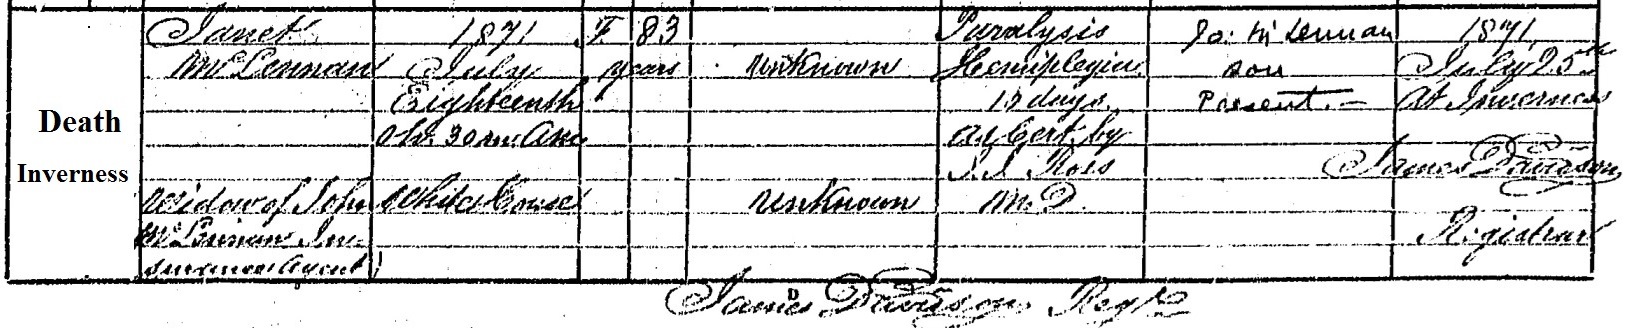 Death
Inverness
Janet
McLennan
Widow of John
McLennan In-
surance Agent
1871
July
Eighteenth
0h. 30 m. A.M.
White House
F.
83
years
Unknown
Unknown
Paralysis
Hemiplegia
days
as Cert. by
Ross
M.D.
Jo: McLennan
son
Present. -
1871
July 25th
At Inverness
James Davidson
Registrar
James Davidson Regr